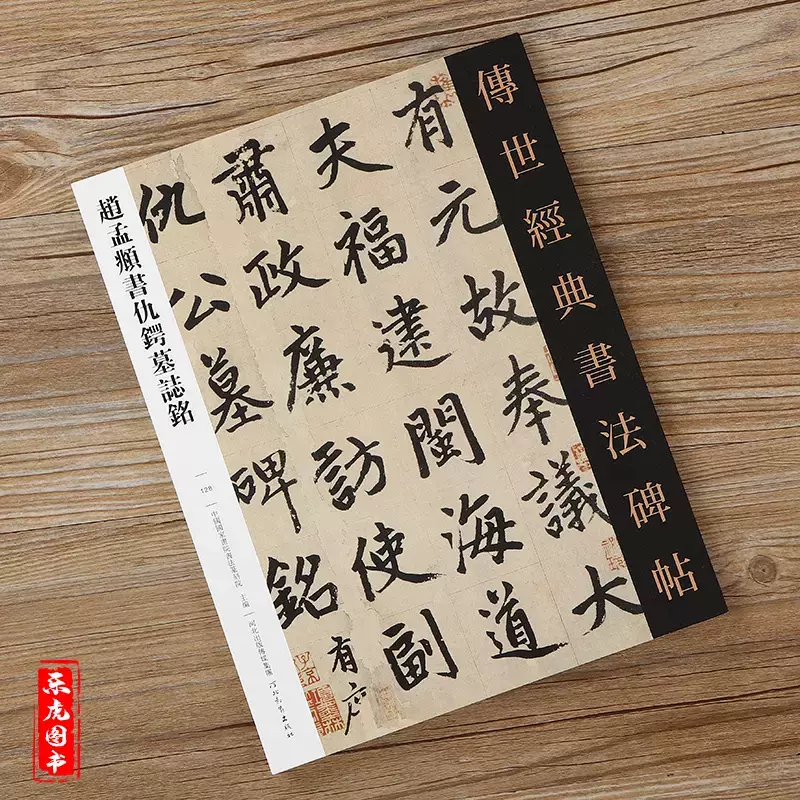 傳世經典書法碑帖
有元故奉議大
夫福建閩海道
肅政廉訪使副
仇公墓碑銘有
趙孟頫書仇鍔墓誌銘
128
中國國家畫院書法篆刻院 主編
河北出版傳媒集團
河北教育出版社
乐虎图书